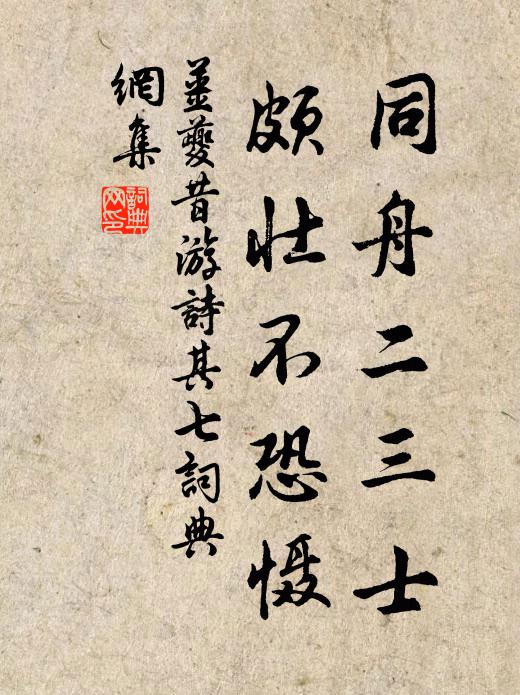 同舟二三士
頗壮不恐慑
姜夔昔游詩其七詞典
網集
詞典网印